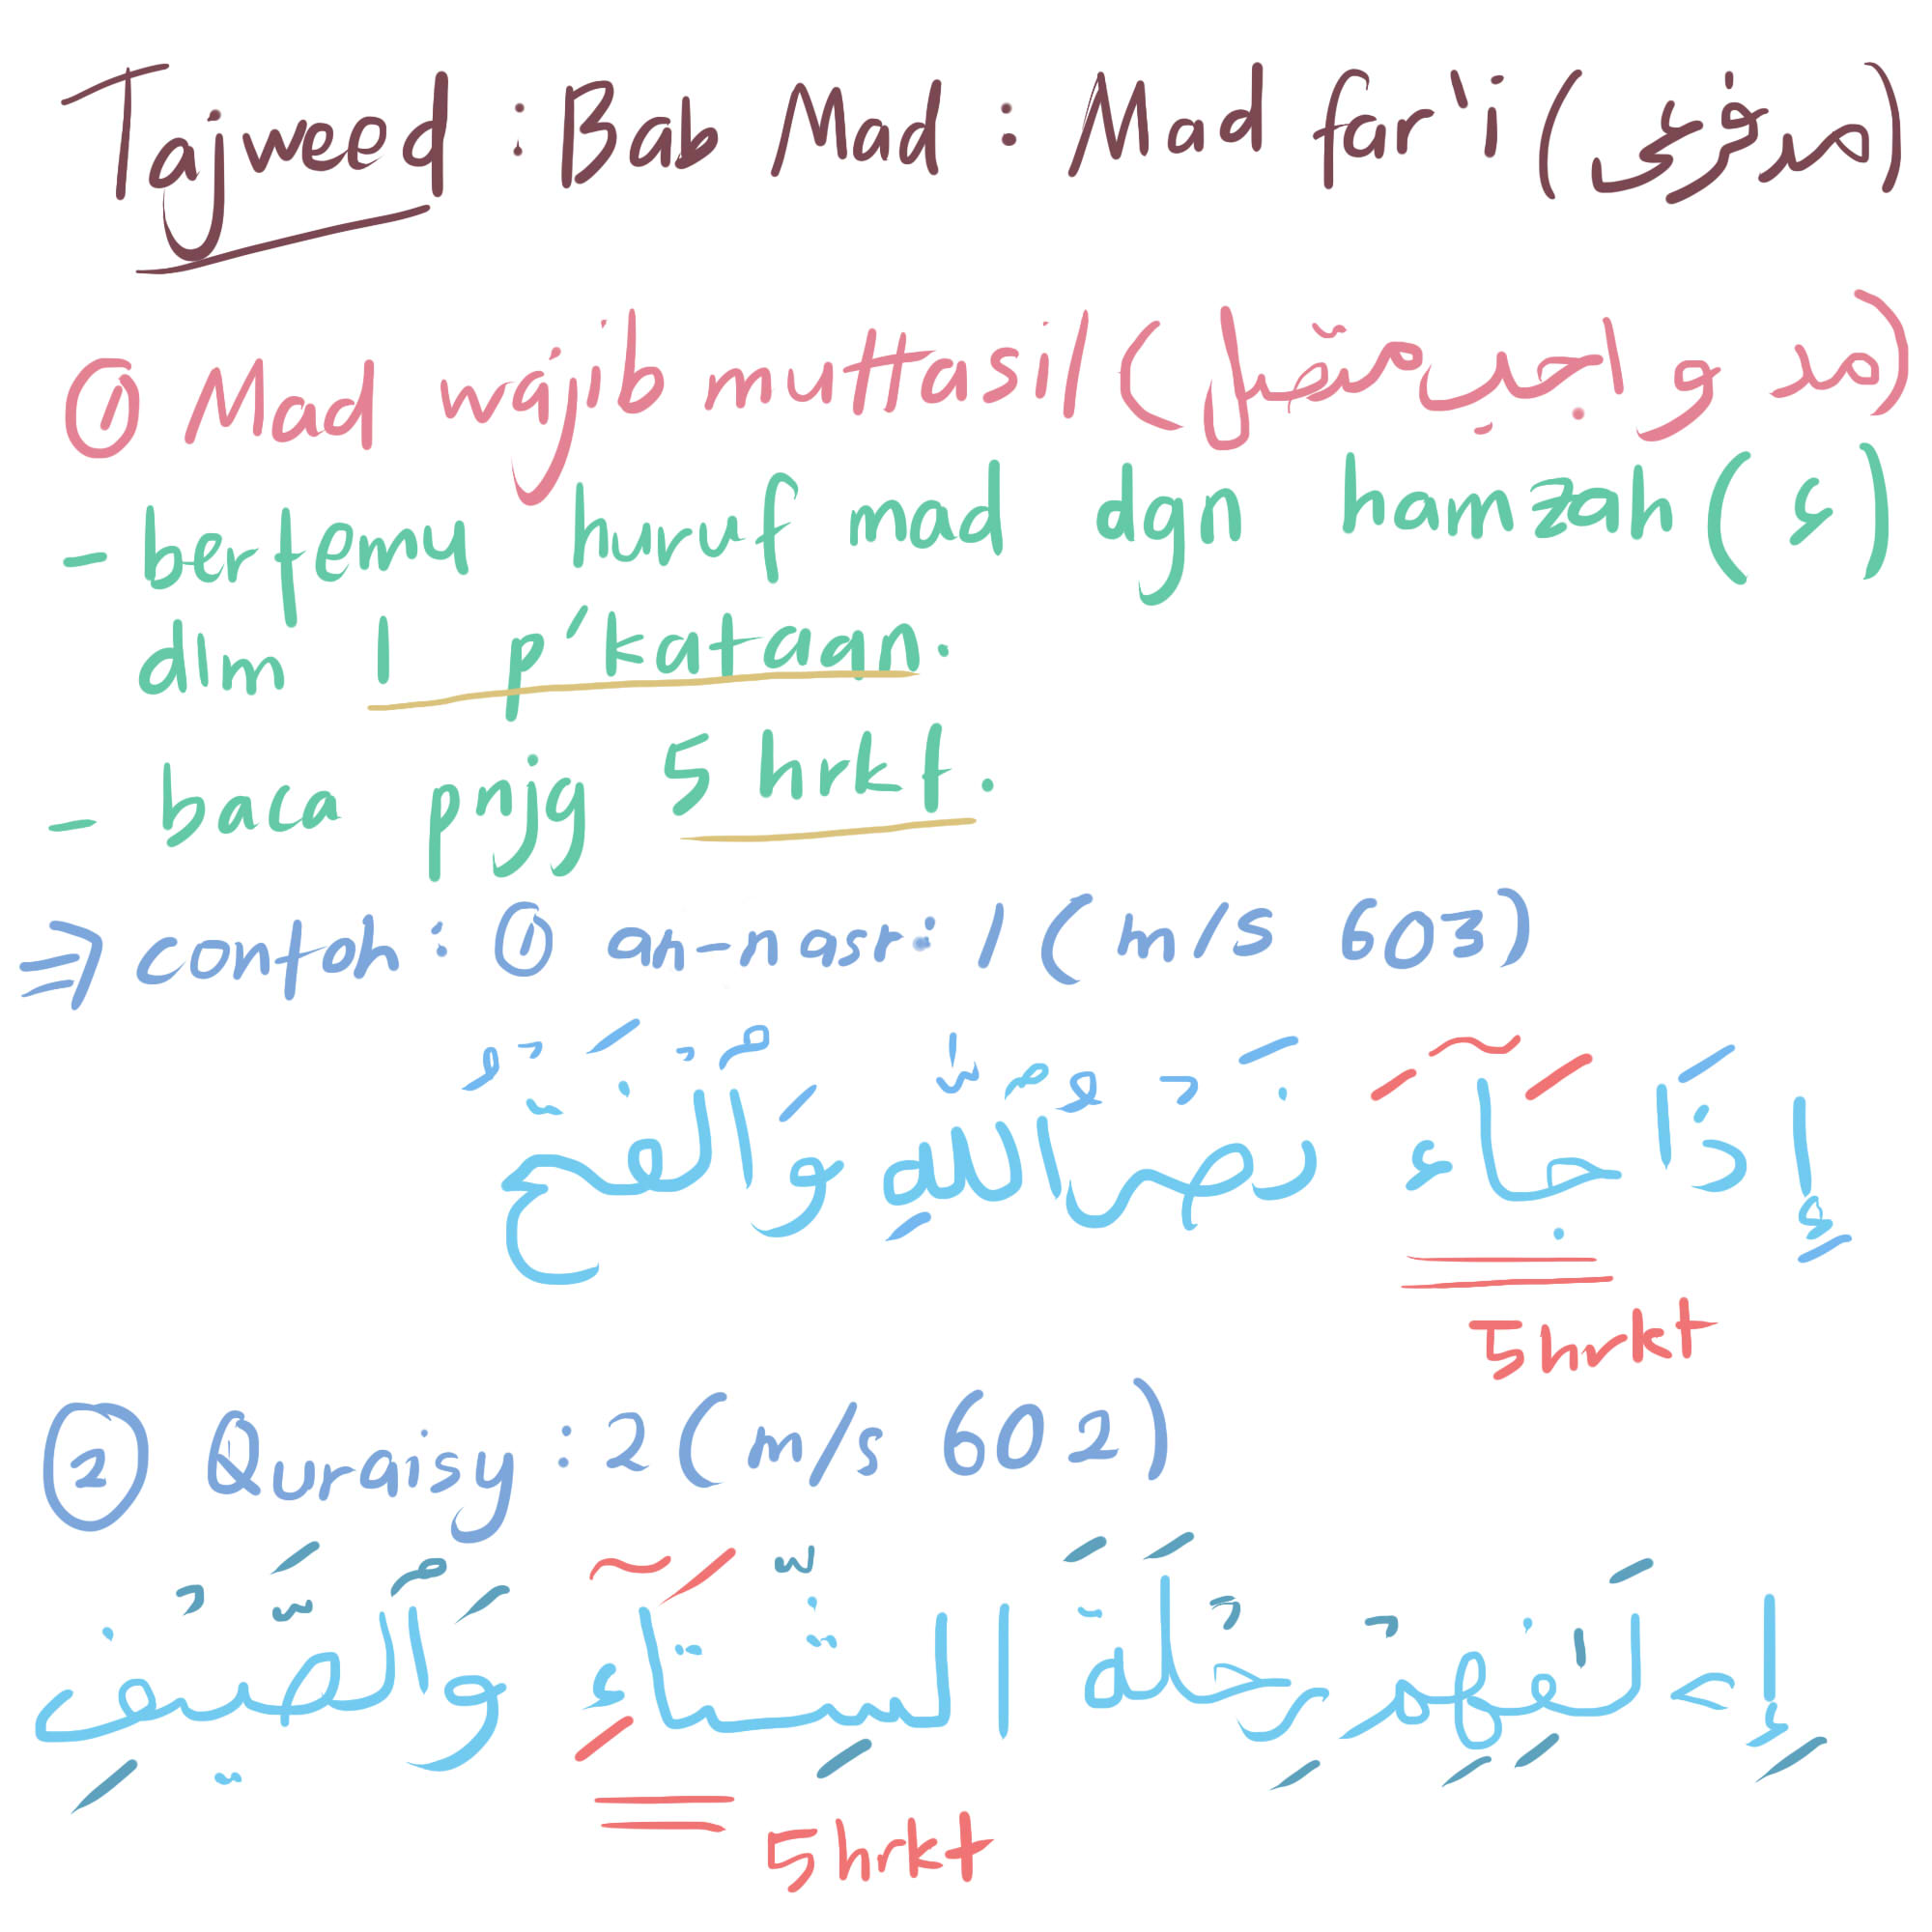 Tajweed : Bab Mad : Mad far'i (مد فرعي)
① Mad wajib muttasil (مد واجب متصل)
- bertemu huruf mad dgn hamzah (ء)
dlm 1 p'kataan.
- baca pnjg 5 hrkt.
⇒ contoh : ① an-nasr : 1 (m/s 603)
إِذَا جَآءَ نَصْرُ ٱللَّهِ وَٱلْفَتْحُ
5 hrkt
② Quraisy : 2 (m/s 602)
إِۦلَٰفِهِمْ رِحْلَةَ الشِّتَآءِ وَٱلصَّيْفِ
5 hrkt